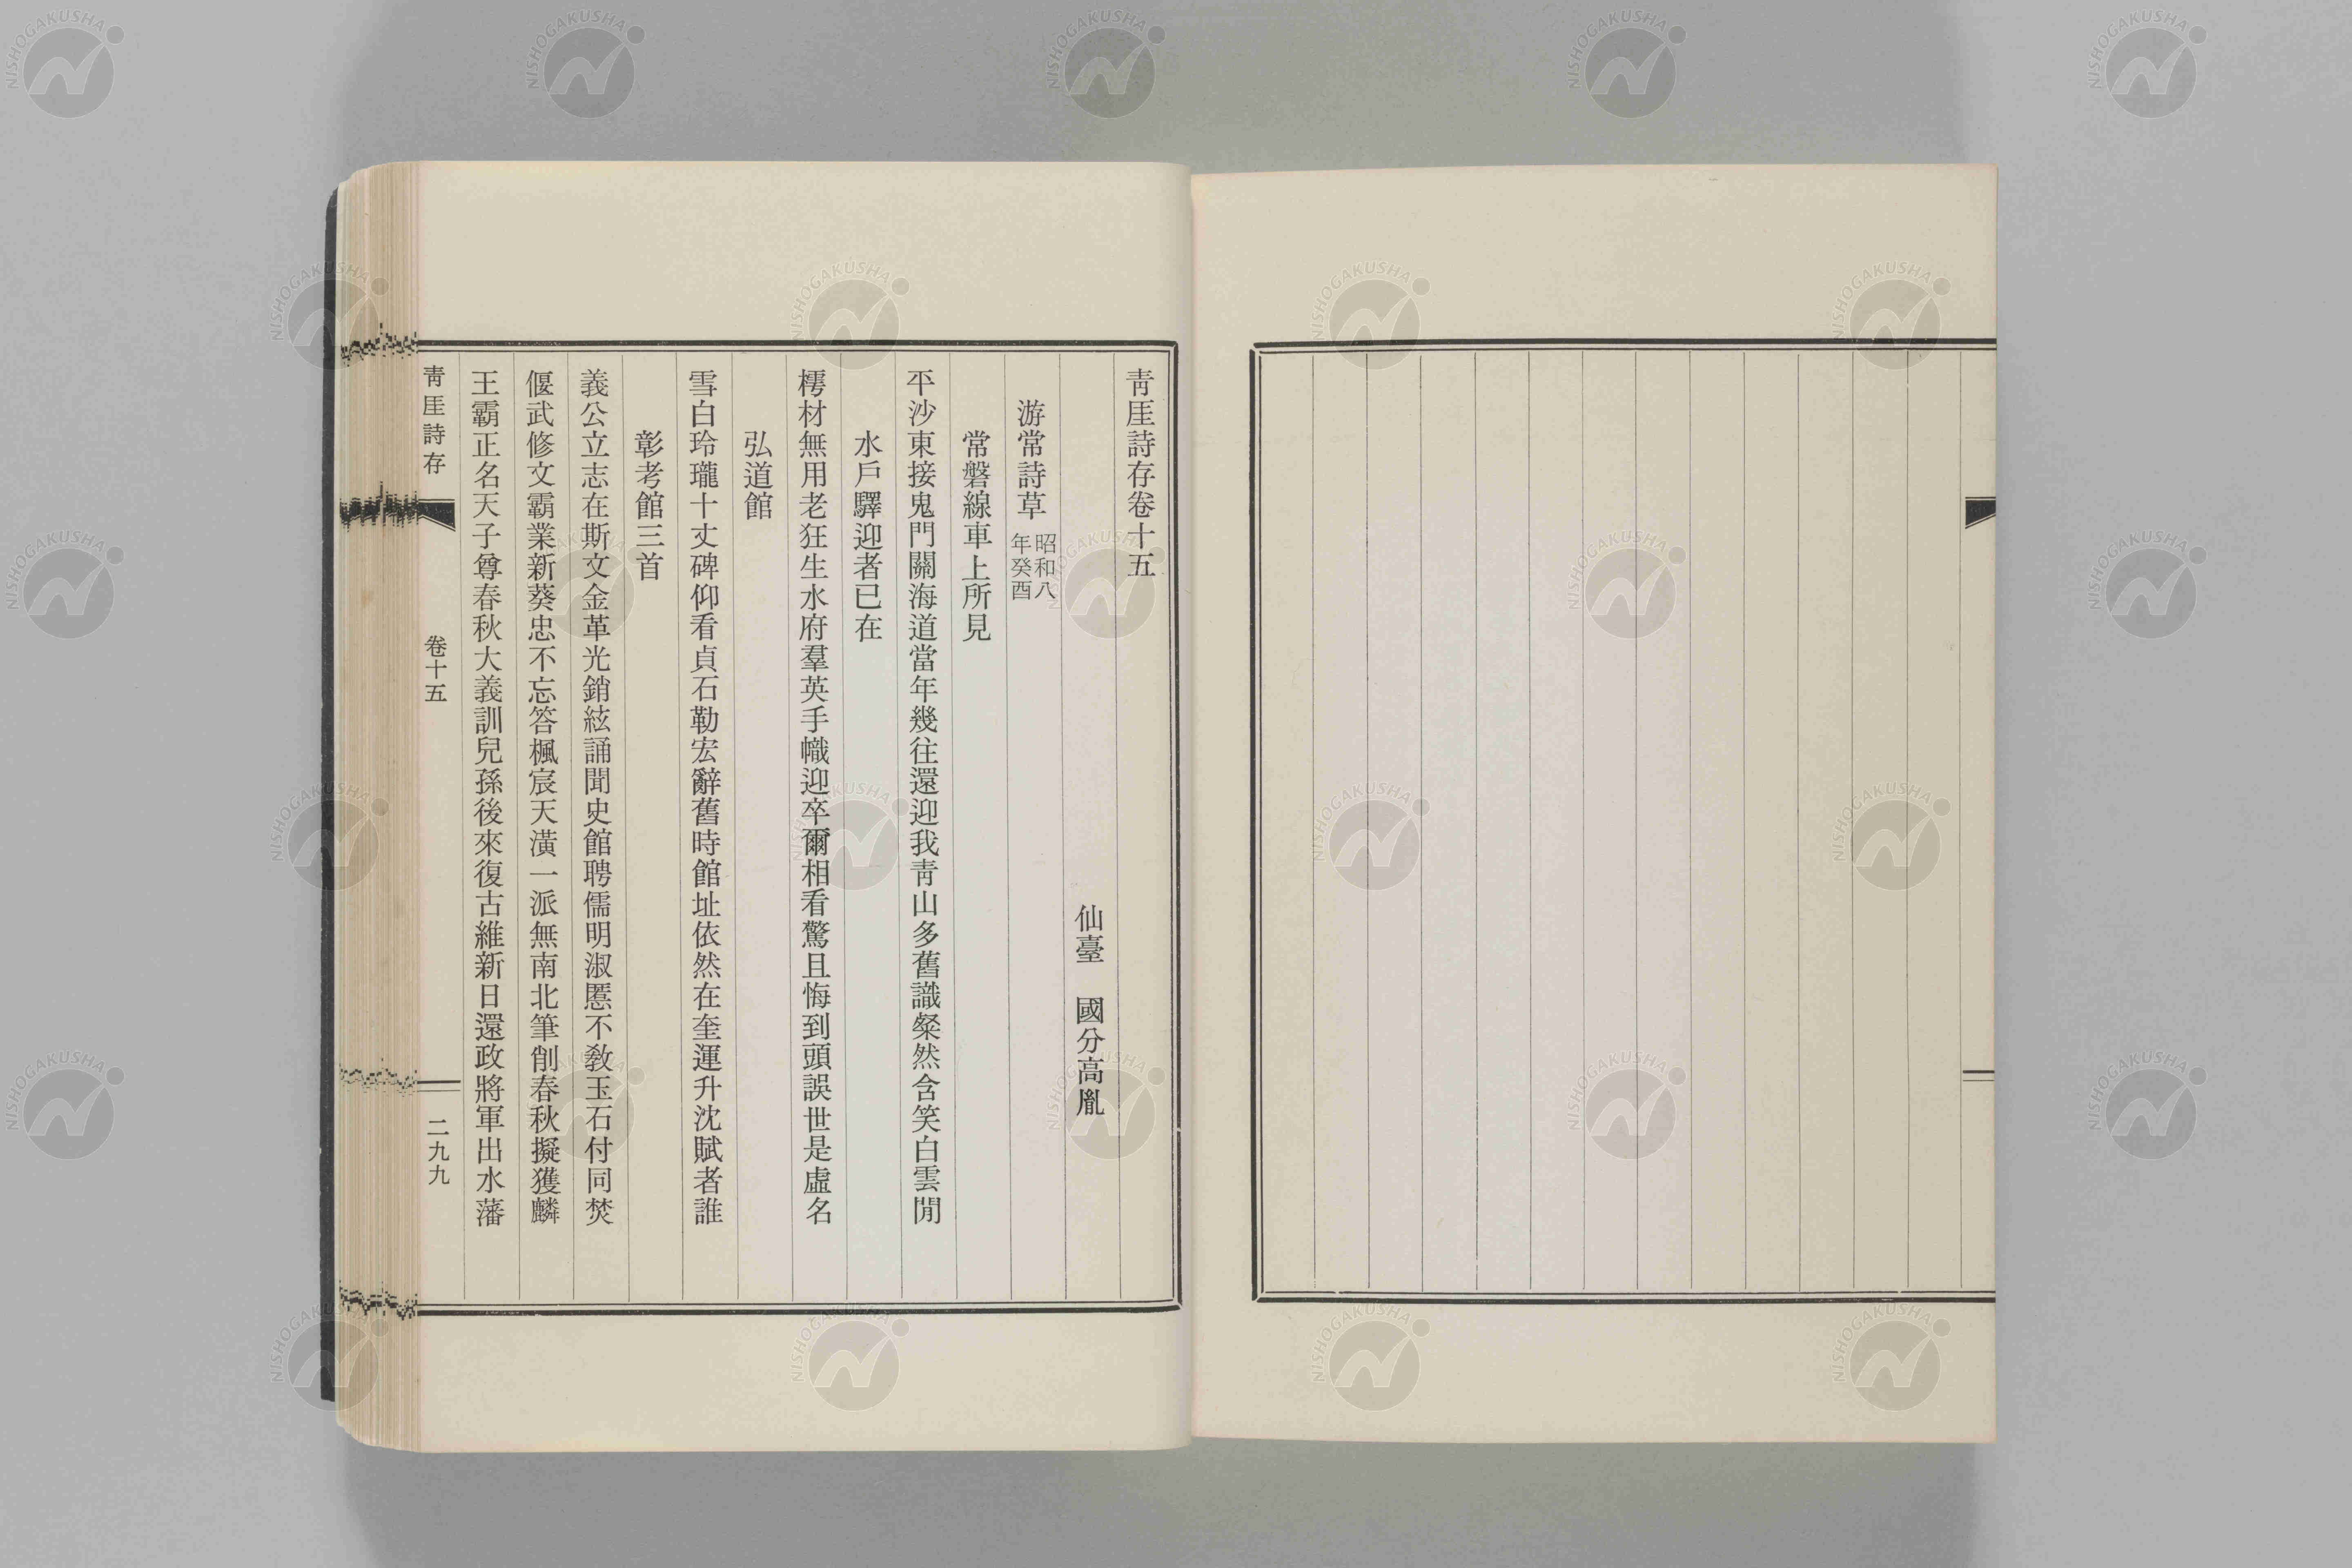 青厓詩存卷十五
仙臺　國分高胤
游常詩草 昭和八年癸酉
常磐線車上所見
平沙東接鬼門關海道當年幾往還迎我青山多舊識粲然含笑白雲閒
水戶驛迎者已在
樗材無用老狂生水府羣英手幟迎卒爾相看驚且悔到頭誤世是虛名
弘道館
雪白玲瓏十丈碑仰看貞石勒宏辭舊時館址依然在奎運升沈賦者誰
彰考館三首
義公立志在斯文金革光銷絃誦聞史館聘儒明淑慝不敎玉石付同焚
偃武修文霸業新葵忠不忘答楓宸天潢一派無南北筆削春秋擬獲麟
王霸正名天子尊春秋大義訓兒孫後來復古維新日還政將軍出水藩
青厓詩存
卷十五
二九九
NISHOGAKUSHA